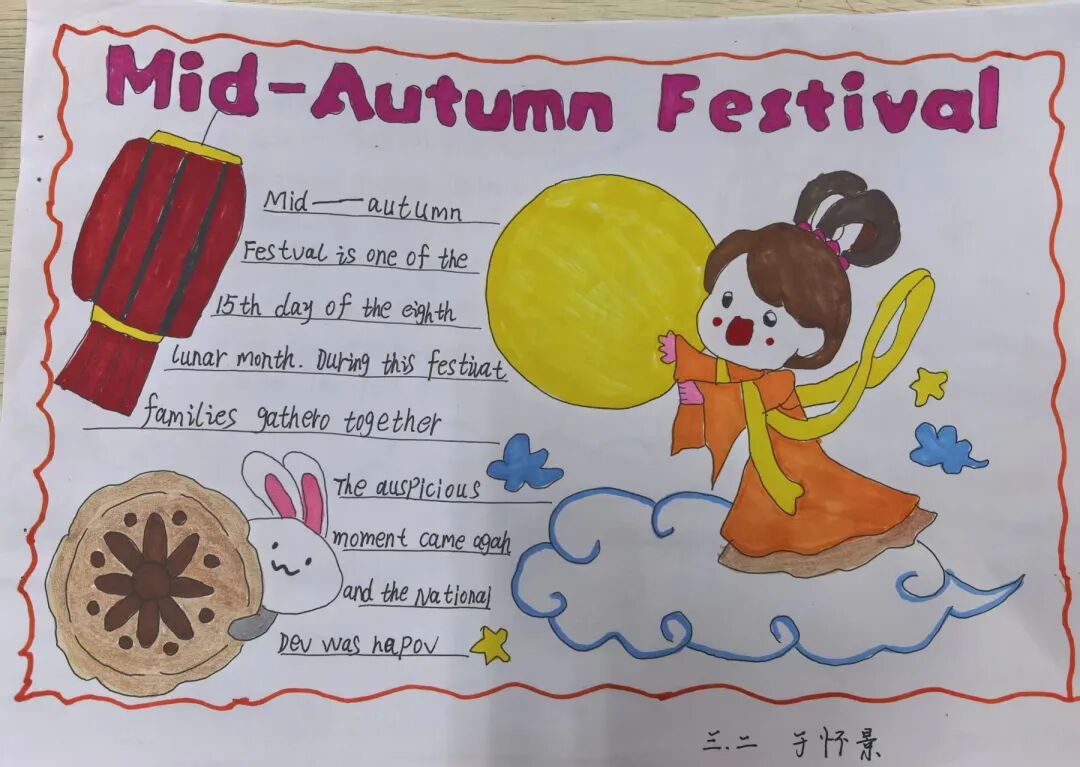 Mid-Autumn Festival
Mid—autumn
Festval is one of the
15th day of the eighth
lunar month. During this festivat
families gathero together
The auspicious
moment came agah
and the National
Dev was hapov
三.二 于怀景